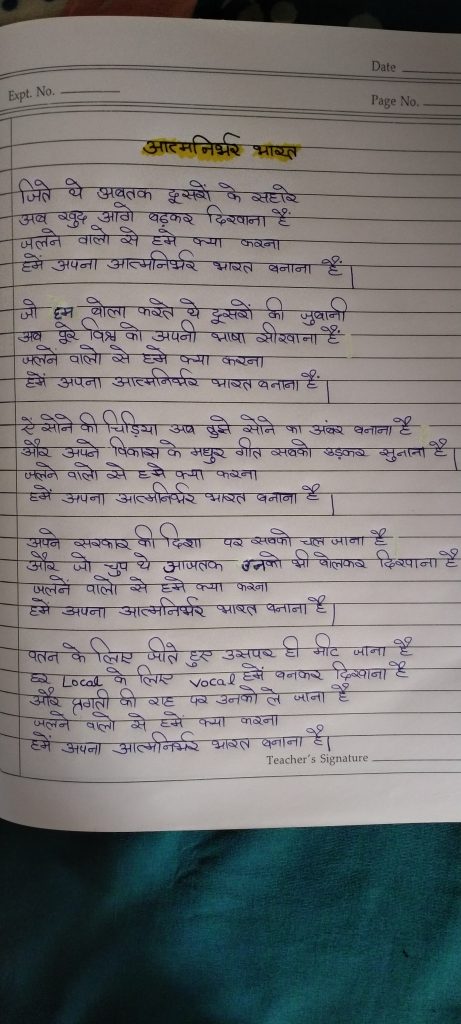 Date
Expt. No.
Page No.
आत्मनिर्भर भारत
जिते थे अबतक दूसरों के सहारे
अब खुद आगे बढ़कर दिखाना हैं
जलने वालो से हमे क्या करना
हमें अपना आत्मनिर्भर भारत बनाना हैं|
जो हम बोला करते थे दूसरों की जुबानी
अब पुरे विश्व को अपनी भाषा सीखाना हैं
जलने वालो से हमे क्या करना
हमें अपना आत्मनिर्भर भारत बनाना हैं|
ऐ सोने की चिड़िया अब तुझे सोने का अंबर बनाना है
और अपने विकास के मधुर गीत सबको उड़कर सुनाना है|
जलने वालो से हमे क्या करना
हमें अपना आत्मनिर्भर भारत बनाना है|
अपने सरकार की दिशा पर सबको चल जाना है
और जो चुप थे आजतक उनको भी बोलकर दिखाना है
जलनें वालो से हमे क्या करना
हमें अपना आत्मनिर्भर भारत बनाना है|
वतन के लिए जीते हुए उसपर ही मीट जाना है
हर Local के लिए vocal हमें बनकर दिखाना है
और प्रगती की राह पर उनको ले जाना है
जलने वालो से हमें क्या करना
हमें अपना आत्मनिर्भर भारत बनाना है|
Teacher's Signature